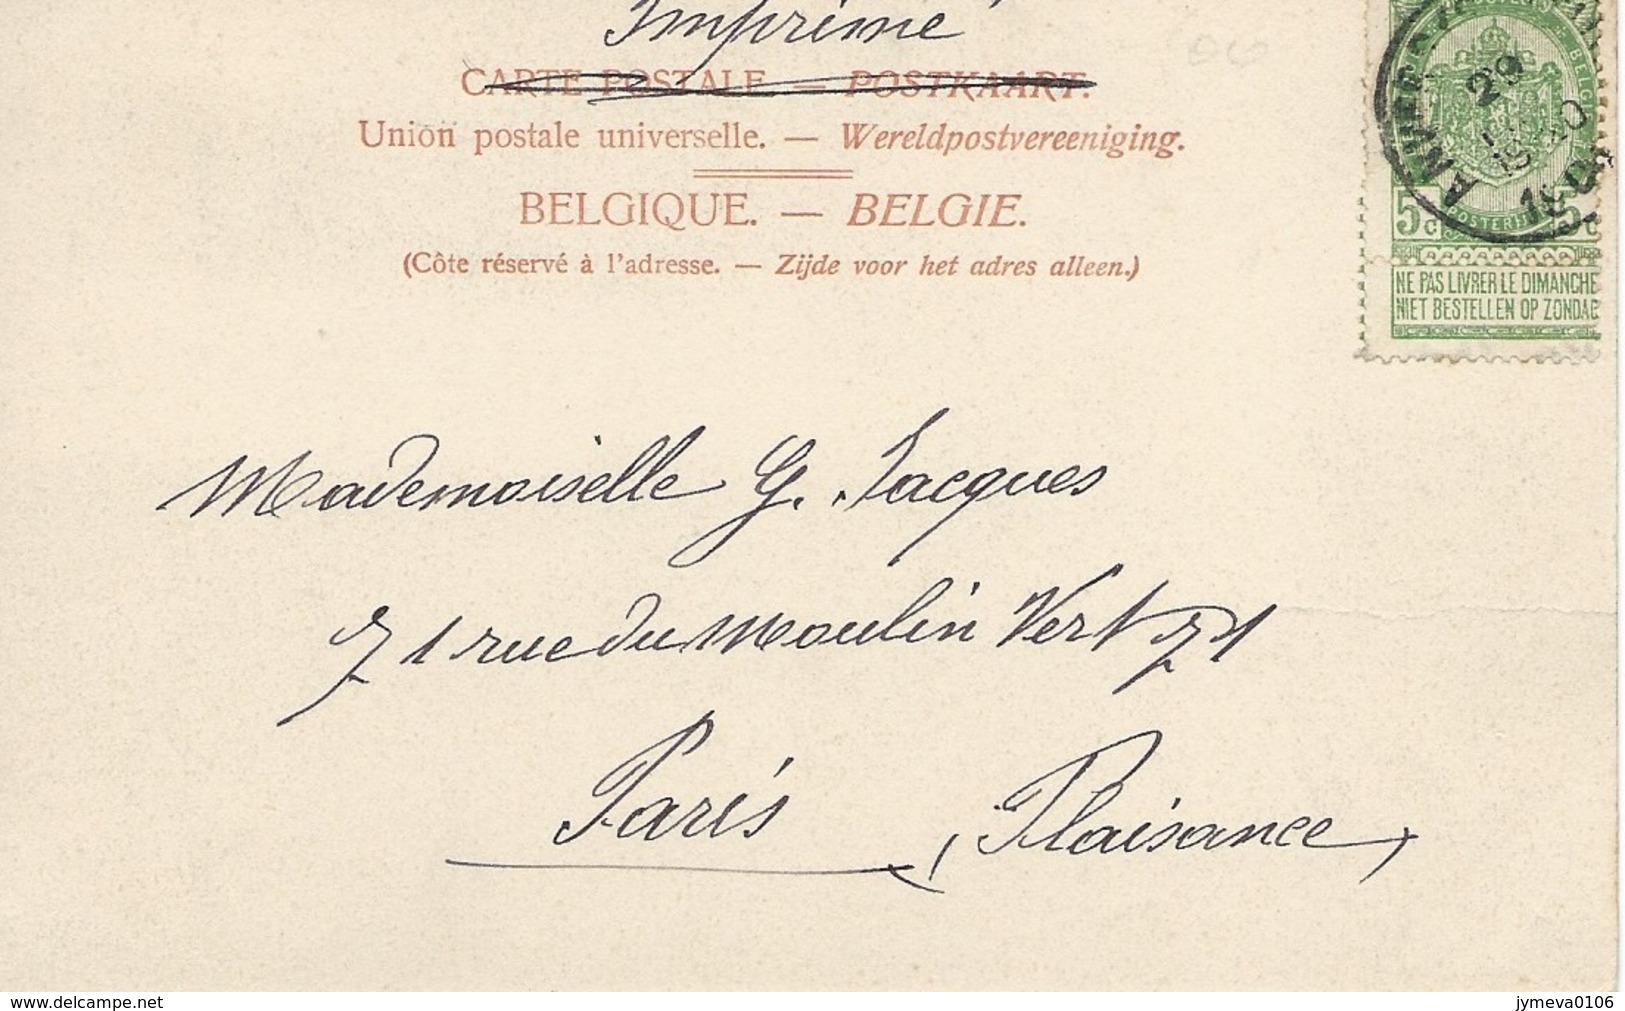 Imprimé
CARTE POSTALE. — POSTKAART.
Union postale universelle. — Wereldpostvereeniging.
BELGIQUE. — BELGIE.
(Côte réservé à l'adresse. — Zijde voor het adres alleen.)
29
5c 5c
NE PAS LIVRER LE DIMANCHE
NIET BESTELLEN OP ZONDAG
Mademoiselle G. Jacques
71 rue du Moulin Vert 71
Paris (Plaisance)
www.delcampe.net
jymeva0106